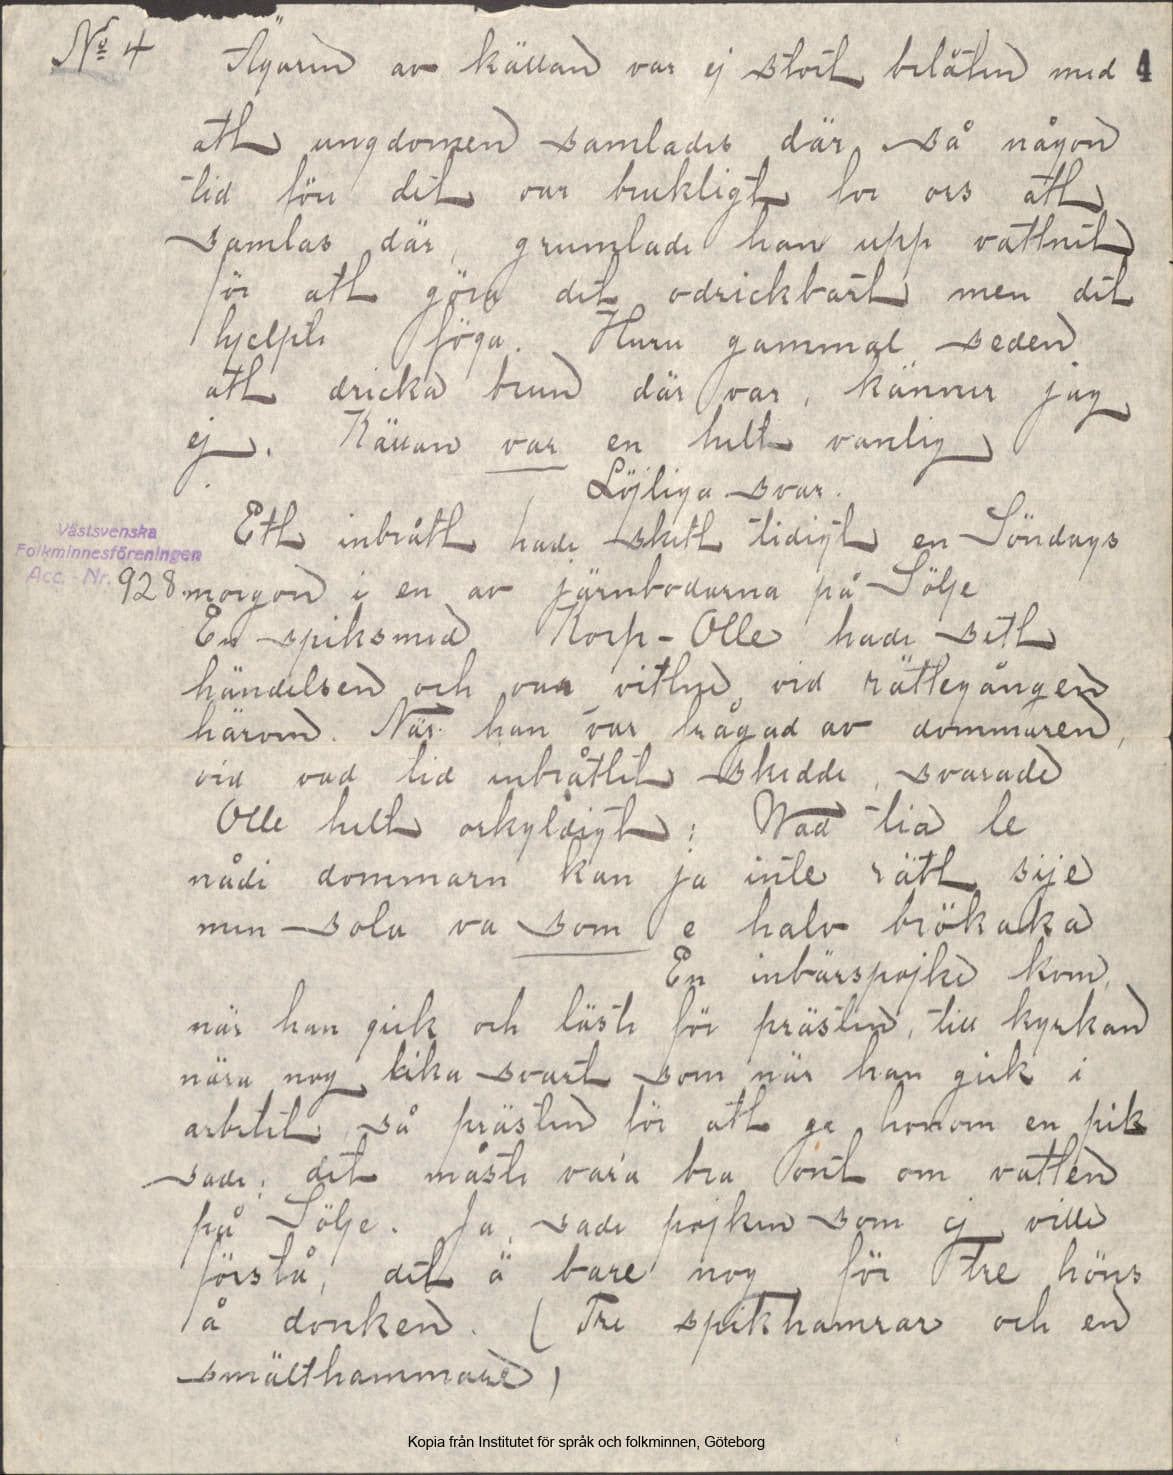 No 4
Ägaren av källan var ej stort belåten med 4
att ungdomen samlades där så någon
tid förr det var brukligt for oss att
samlas där, grumlade han upp vattnet
för att göra det odrickbart men det
hjelpte föga. Huru gammal seden
att dricka brun där var, känner jag
ej. Källan var en helt vanlig
Löjliga svar.
Ett inbrått hade skett tidigt en Söndags
Västsvenska
Folkminnesföreningen
Acc. - Nr. 928
morgon i en av järnbodarna på Sölje
En spiksmed Korp-Olle hade sett
händelsen och var vittne vid rättegången
härom. När han var frågad av dommaren,
vid vad tid inbråttet skedde, svarade
Olle helt oskyldigt: Wad tia le
nådi dommarn kan ja inte rätt sije
men sola va som e halv brökaka
En inbärspojke kom,
när han gick och läste för prästen, till kyrkan
nära nog lika svart som när han gick i
arbetet, så prästen för att ge honom en pik
sade; det måste vara bra ont om vatten
på Sölje. Ja, sade pojken som ej ville
förstå, det ä bare nog för tre höns
å donken. (Tre spikhamrar och en
smälthammare)
Kopia från Institutet för språk och folkminnen, Göteborg